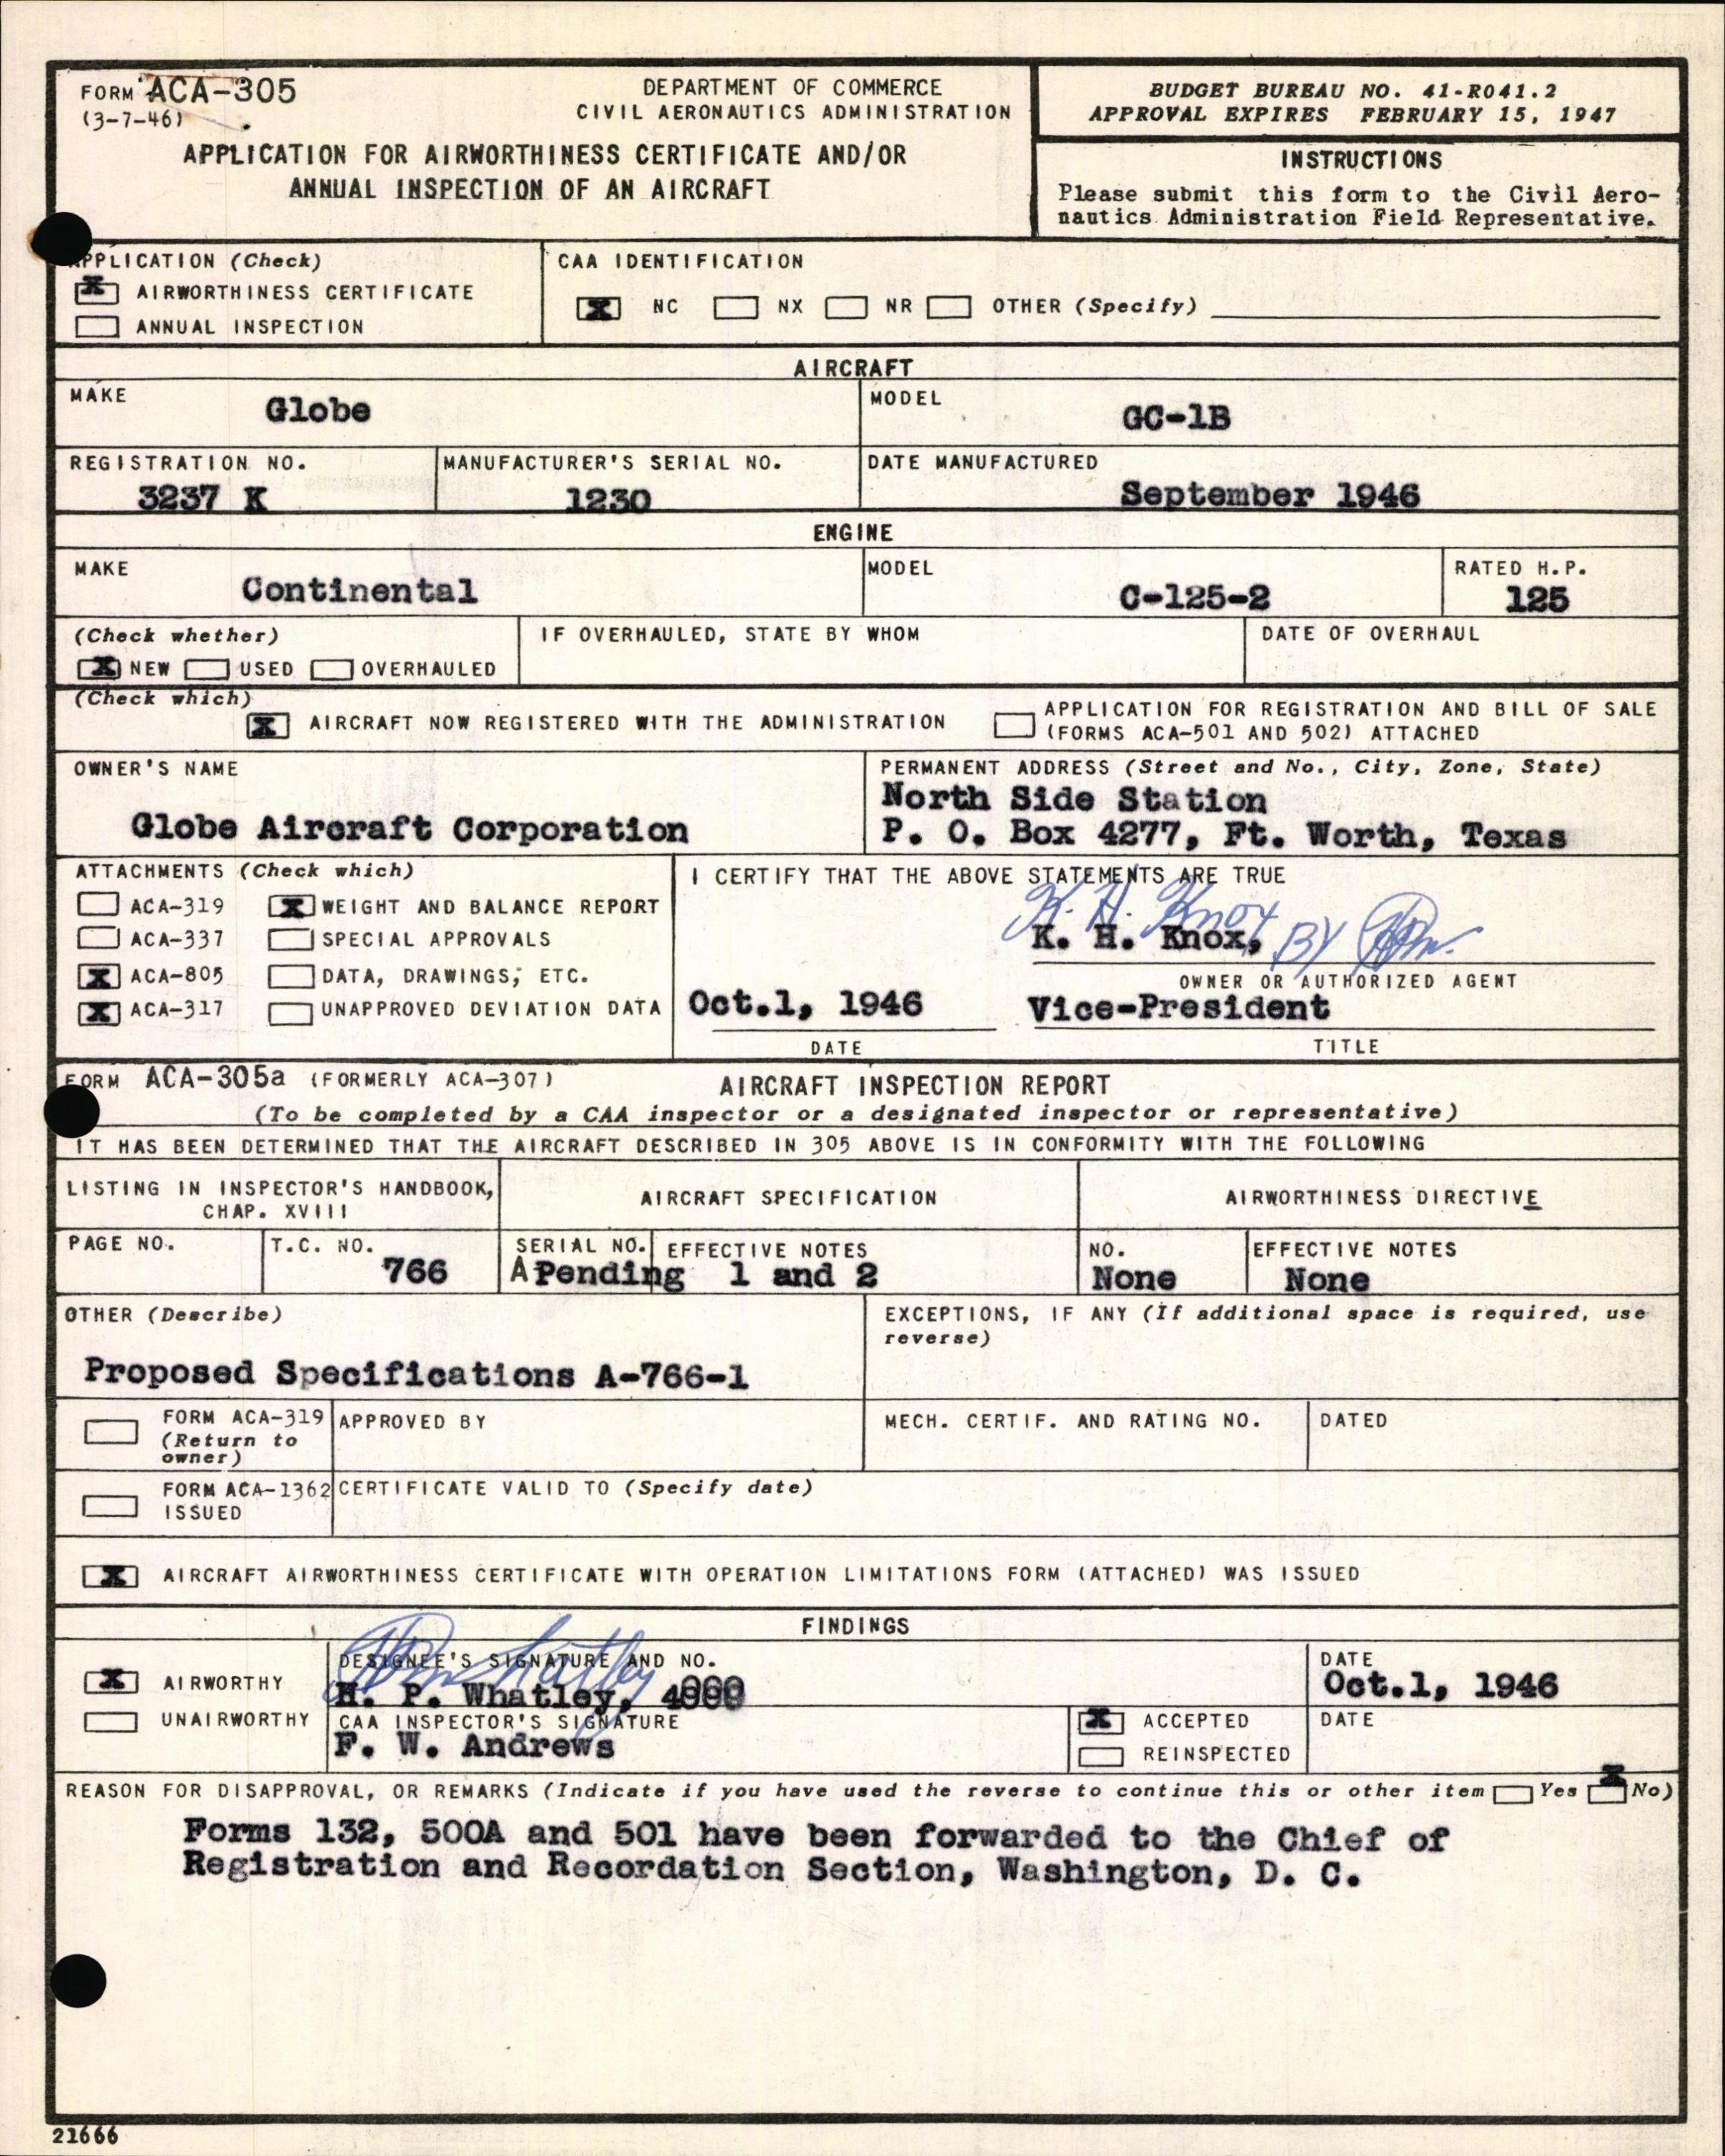 FORM ACA-305
(3-7-46)
DEPARTMENT OF COMMERCE
CIVIL AERONAUTICS ADMINISTRATION
APPLICATION FOR AIRWORTHINESS CERTIFICATE AND/OR
ANNUAL INSPECTION OF AN AIRCRAFT
BUDGET BUREAU NO. 41-R041.2
APPROVAL EXPIRES FEBRUARY 15, 1947
INSTRUCTIONS
Please submit this form to the Civil Aero-
nautics Administration Field Representative.
APPLICATION (Check)
X AIRWORTHINESS CERTIFICATE
ANNUAL INSPECTION
CAA IDENTIFICATION
X NC NX NR OTHER (Specify)
AIRCRAFT
MAKE
Globe
MODEL
GC-1B
REGISTRATION NO.
3237 K
MANUFACTURER'S SERIAL NO.
1230
DATE MANUFACTURED
September 1946
ENGINE
MAKE
Continental
MODEL
C-125-2
RATED H.P.
125
(Check whether)
X NEW USED OVERHAULED
IF OVERHAULED, STATE BY WHOM
DATE OF OVERHAUL
(Check which)
X AIRCRAFT NOW REGISTERED WITH THE ADMINISTRATION
APPLICATION FOR REGISTRATION AND BILL OF SALE
(FORMS ACA-501 AND 502) ATTACHED
OWNER'S NAME
Globe Aircraft Corporation
PERMANENT ADDRESS (Street and No., City, Zone, State)
North Side Station
P. O. Box 4277, Ft. Worth, Texas
ATTACHMENTS (Check which)
ACA-319 X WEIGHT AND BALANCE REPORT
ACA-337 SPECIAL APPROVALS
X ACA-805 DATA, DRAWINGS, ETC.
X ACA-317 UNAPPROVED DEVIATION DATA
I CERTIFY THAT THE ABOVE STATEMENTS ARE TRUE
K. H. Knox BY
K. H. Knox,
OWNER OR AUTHORIZED AGENT
Oct.1, 1946
Vice-President
DATE
TITLE
FORM ACA-305a (FORMERLY ACA-307)
AIRCRAFT INSPECTION REPORT
(To be completed by a CAA inspector or a designated inspector or representative)
IT HAS BEEN DETERMINED THAT THE AIRCRAFT DESCRIBED IN 305 ABOVE IS IN CONFORMITY WITH THE FOLLOWING
LISTING IN INSPECTOR'S HANDBOOK,
CHAP. XVIII
AIRCRAFT SPECIFICATION
AIRWORTHINESS DIRECTIVE
PAGE NO.
T.C. NO.
766
SERIAL NO.
A Pending
EFFECTIVE NOTES
1 and 2
NO.
None
EFFECTIVE NOTES
None
OTHER (Describe)
Proposed Specifications A-766-1
EXCEPTIONS, IF ANY (If additional space is required, use
reverse)
FORM ACA-319
(Return to
owner)
APPROVED BY
MECH. CERTIF. AND RATING NO.
DATED
FORM ACA-1362
ISSUED
CERTIFICATE VALID TO (Specify date)
X AIRCRAFT AIRWORTHINESS CERTIFICATE WITH OPERATION LIMITATIONS FORM (ATTACHED) WAS ISSUED
FINDINGS
X AIRWORTHY
UNAIRWORTHY
DESIGNEE'S SIGNATURE AND NO.
H. P. Whatley,
DATE
Oct.1, 1946
CAA INSPECTOR'S SIGNATURE
F. W. Andrews
X ACCEPTED
REINSPECTED
DATE
REASON FOR DISAPPROVAL, OR REMARKS (Indicate if you have used the reverse to continue this or other item Yes X No)
Forms 132, 500A and 501 have been forwarded to the Chief of
Registration and Recordation Section, Washington, D. C.
21666